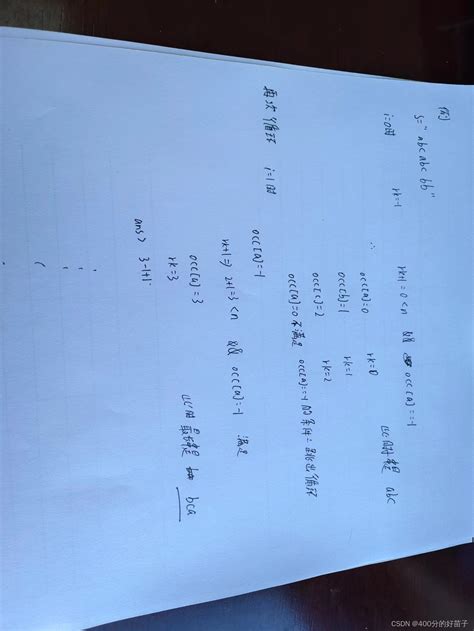 例
s="abcabcbb"
i=0时 rk=-1 rk+1=0<n && occ[a]==-1
∴ occ[a]=0 rk=0 此时就是 abc
occ[b]=1 rk=1
occ[c]=2 rk=2
occ[a]=0 不满足 occ[a]==-1 的条件 跳出循环
再次循环 i=1时
occ[a]=-1
rk+1=> 2+1=3<n && occ[a]=-1 满足
occ[a]=3
rk=3 此时 最长就是 bca
ans> 3-1+1
CSDN @400分的好苗子